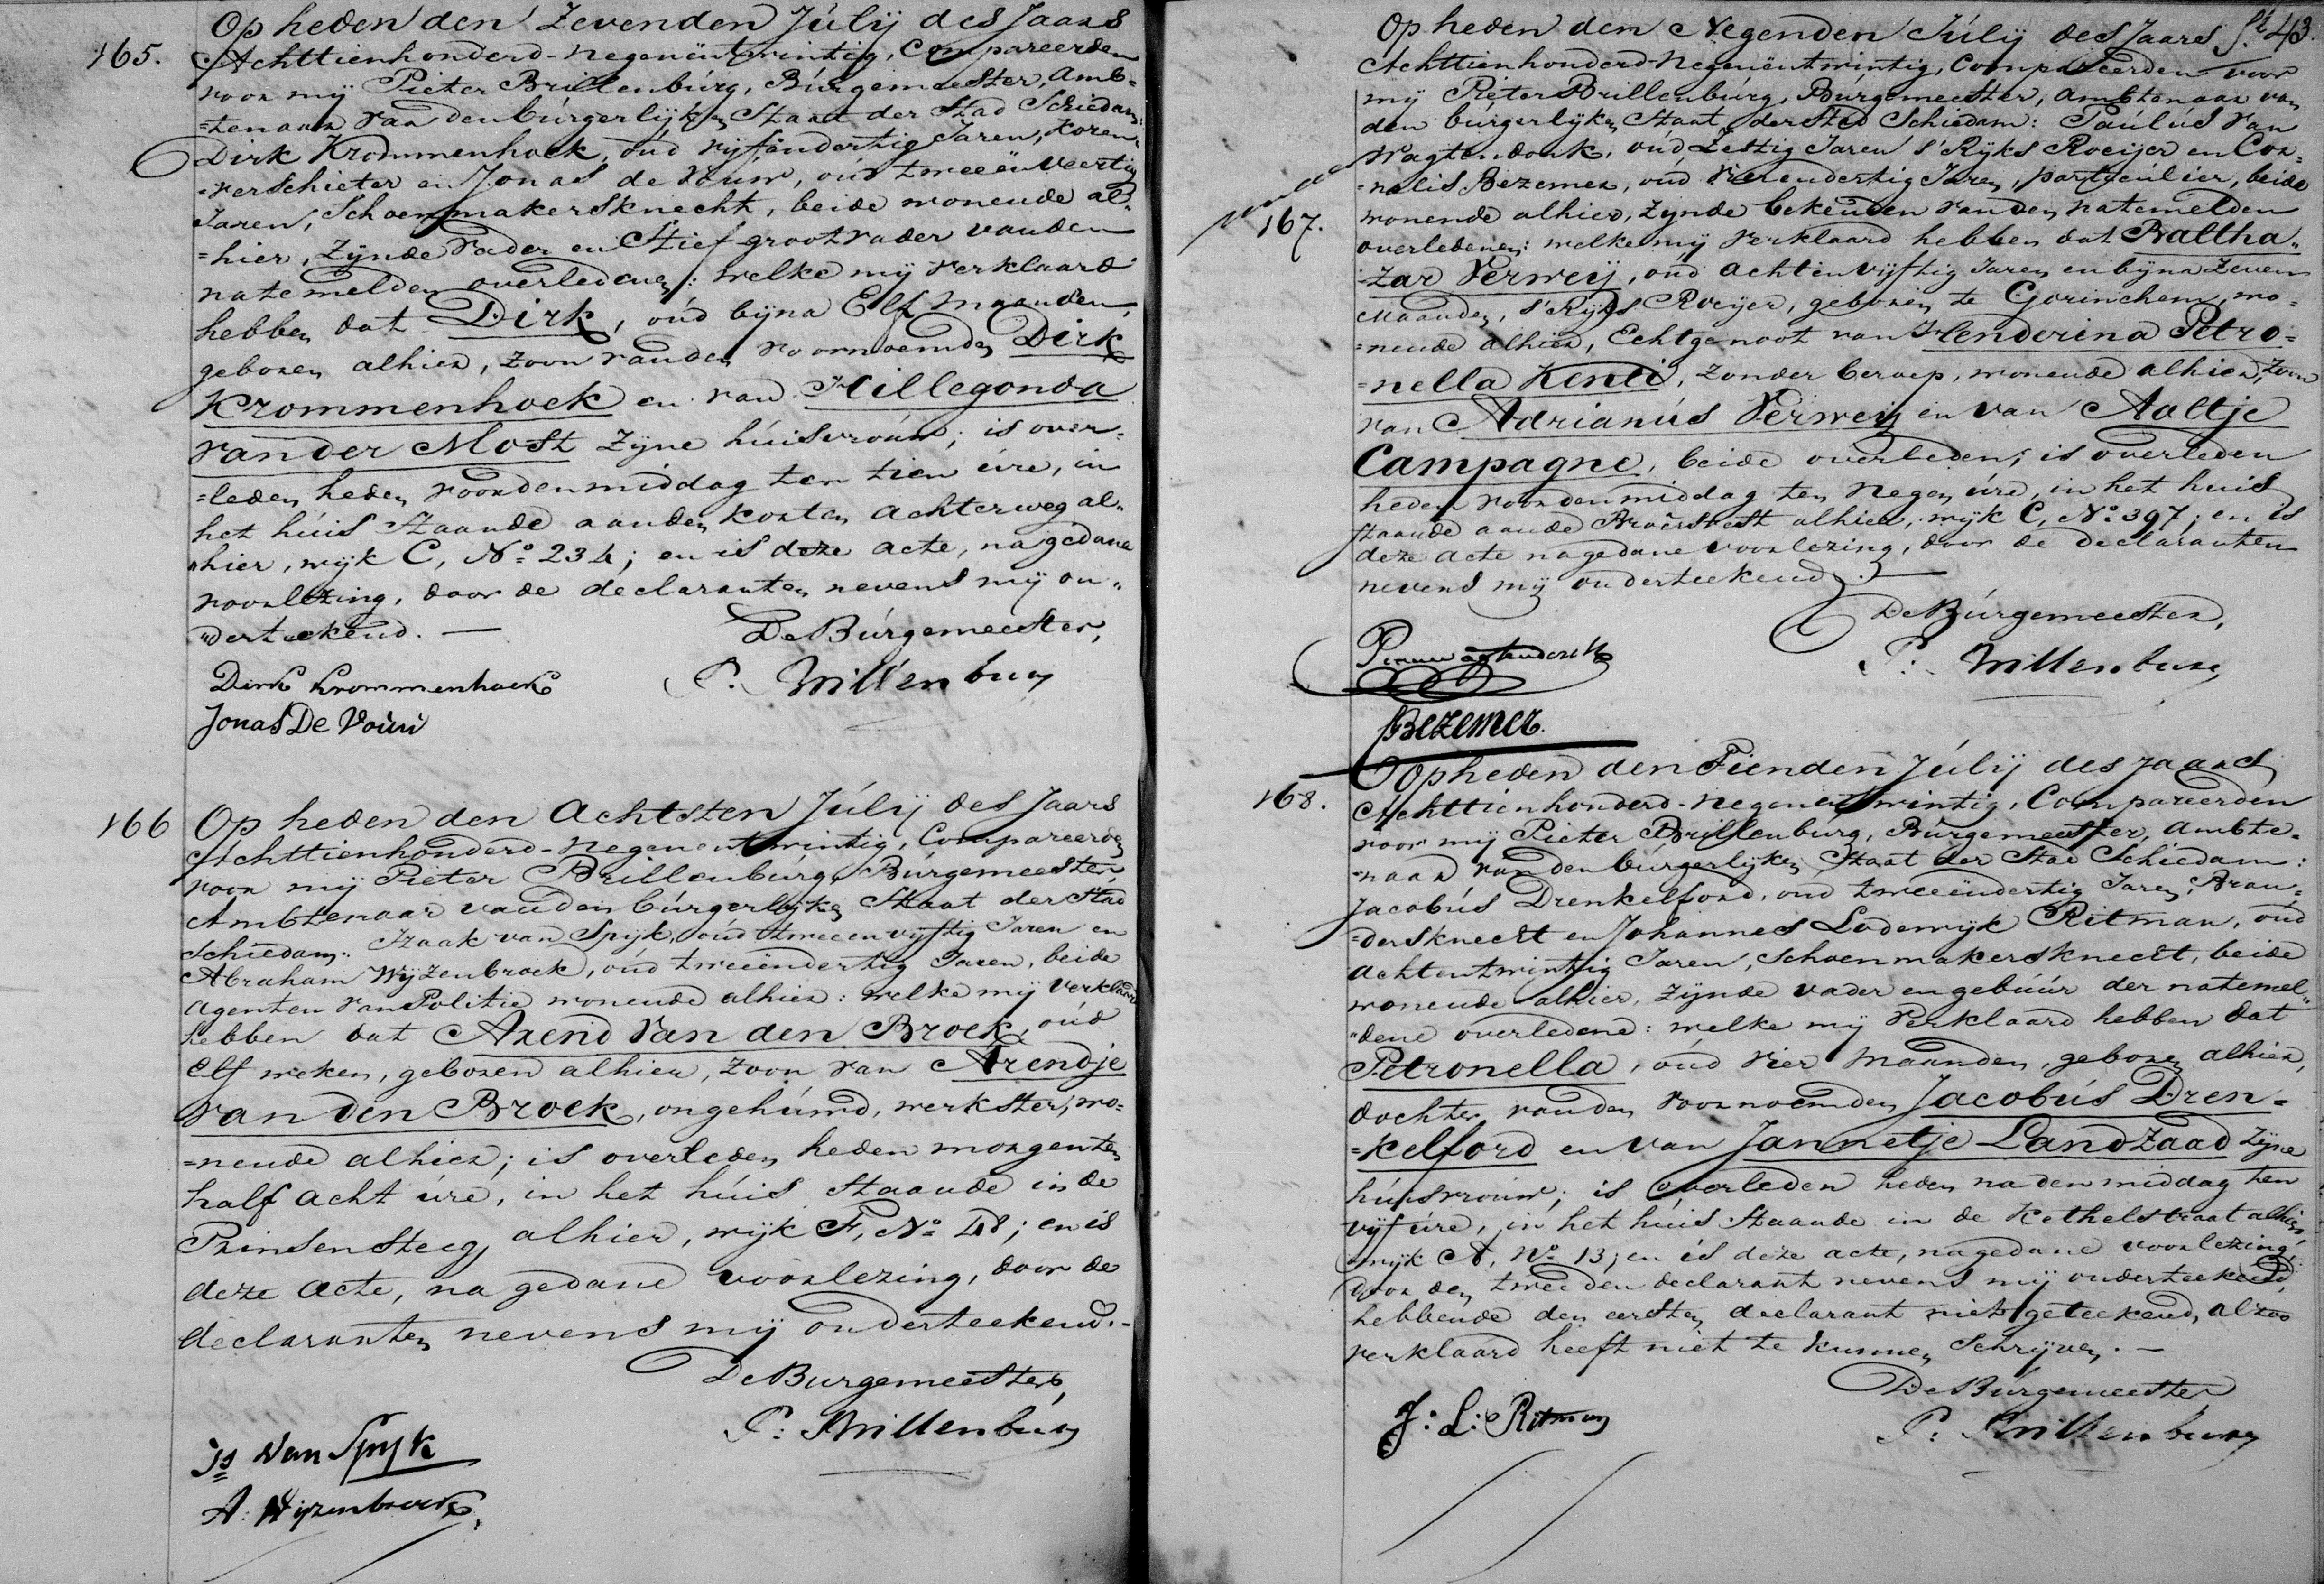 165.
Op heden den Zevenden Júlij des Jaars
Achttienhonderd-negenëntwintig, Compareerden
voor mij Pieter Brillenbúrg, Búrgemeester, Amb-
=tenaar van den búrgerlijken Staat der Stad Schiedam:
Dirk Krommenhoek, oud vijfendertig Jaren, Koren-
=verschieter en Jonas de Vouw, oud tweeënveertig
Jaren, Schoenmakersknecht, beide wonende al-
=hier, zijnde Vader en Stief-grootvader vanden
natemelden overledenen: welke mij verklaard
hebben dat Dirk, oúd bijna Elf maanden,
geboren alhier, zoon vanden voornoemden Dirk
Krommenhoek en van Hillegonda
van der Most zijne húisvroúw; is over-
=leden heden voordenmiddag ten tien úre, in
het húis Staande aanden korten achterweg al-
"hier, wijk C, No. 234; en is deze acte, na gedane
voorlezing, door de declaranten nevens mij on-
"derteekend. —
De Búrgemeester,
P. Brillenburg
Dirk Krommenhoek
Jonas De Vouw
166
Op heden den Achtsten Júlij des Jaars
Achttienhonderd-negenentwintig, Compareerden
voor mij Pieter Brillenbúrg, Búrgemeester,
Ambtenaar vanden búrgerlijken Staat der Stad
Schiedam: Izaak van Spijk, oúd tweeenvijftig Jaren en
Abraham Wijzenbroek, oúd tweeëndertig Jaren, beide
agenten van Politie wonende alhier: welke mij verklaard
hebben dat Arend van den Broek, oúd
elf weken, geboren alhier, zoon van Arendje
van den Broek, ongehúwd, werkster, wo=
=nende alhier; is overleden heden morgen ten
half acht úre, in het húis Staande in de
Prinsensteeg alhier, wijk F, No. 48; en is
deze acte, na gedane voorlezing, door de
declaranten nevens mij onderteekend.-
De Burgemeester,
P. Brillenburg
Is Van Spijk
A. Wijzenbroek
fl. 43.
167.
Op heden den Negenden Júlij des Jaars
Achttienhonderd-negenëntwintig, Compareerden voor
mij Pieter Brillenbúrg, Burgemeester, ambtenaar van
den búrgerlijken Staat der Stad Schiedam: Paúlús van
Wagtendonk, oúd Zestig Jaren s'Rijks Roeijer en Cor=
=nelis Bezemer, oud vierendertig Jaren, particulier, beide
wonende alhier, zijnde bekenden vanden natemelden
overledenen: welke mij verklaard hebben dat Baltha-
=zar Verweij, oud achtenvijftig Jaren en bijna zeven
Maanden, s'Rijks Roeijer, geboren te Gorinchem, wo=
=nende alhier, Echtgenoot van Henderina Petro=
=nella Kenli, zonder beroep, wonende alhier, zoon
van Adrianús Verweij en van Aaltje
Campagne, beide overleden; is overleden
heden voordenmiddag ten Negen úre, in het huis
staande aande Broersvest alhier, wijk C, No. 397; en is
deze acte nagedane voorlezing, door de declaranten
nevens mij onderteekend. —
De Búrgemeester,
P. Brillenburg
P van Wagtendonk
Bezemer.
168.
Op heden den Tienden Júlij des Jaars
Achttienhonderd-negenentwintig, Compareerden
voor mij Pieter Brillenbúrg, Búrgemeester, ambte-
=naar vanden búrgerlijken Staat der Stad Schiedam:
Jacobús Drenkelford, oud tweeëndertig Jaren, Bran=
=dersknecht en Johannes Lodewijk Ritman, oúd
achtentwintig Jaren, Schoenmakersknecht, beide
wonende alhier, zijnde vader en gebúúr der natemel-
"dene overledene: welke mij verklaard hebben dat
Petronella, oúd vier maanden, geboren alhier,
dochter vanden voornoemden Jacobús Dren=
=kelford en van Jannetje Landzaad zijne
húisvroúw; is overleden heden nadenmiddag ten
vijf úre, in het húis Staande in de Kethelstraat alhier,
wijk A, No. 13; en is deze acte, nagedane voorlezing,
door den tweeden declarant nevens mij onderteekend,
hebbende den eersten declarant niet geteekend, alzoo
verklaard heeft niet te kunnen Schrijven. —
De Burgemeester
P. Brillenburg
J: L: Ritman